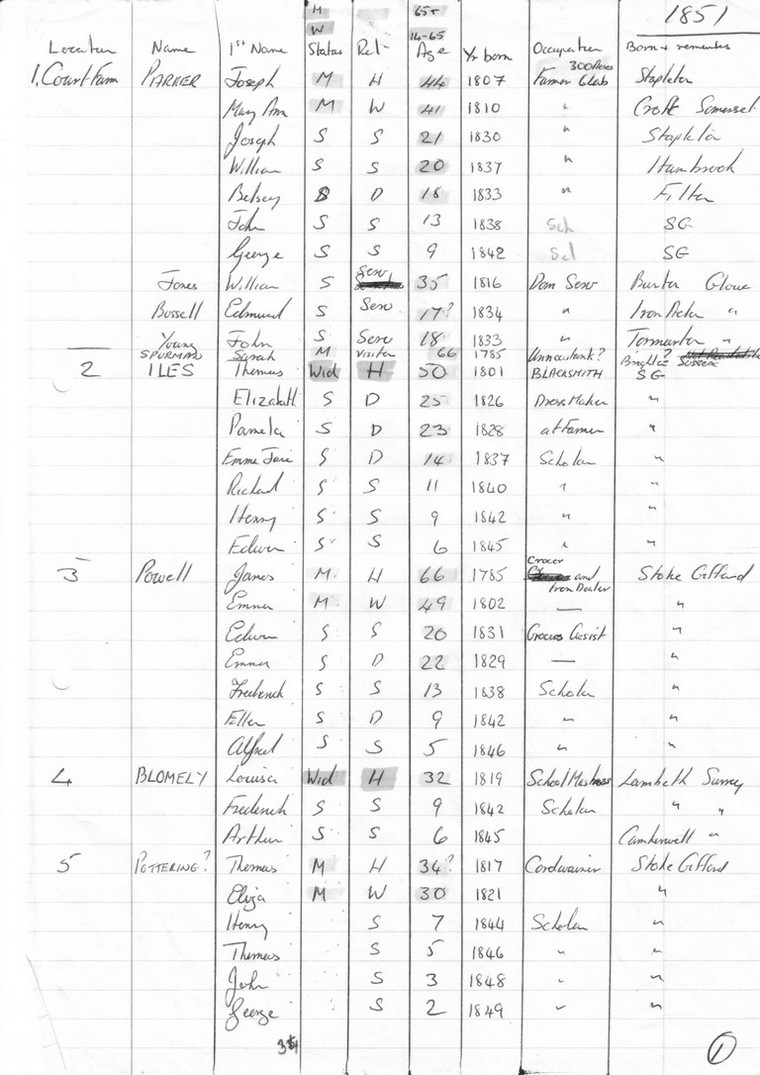 M 65+ 1851
W 14-65
Location Name 1st Name Status Rel- Age Yr born Occupation Born + remarks
300 Acres
1. Court Farm PARKER Joseph M H 44 1807 Farmer 6 Lab Stapleton
Mary Ann M W 41 1810 " Croft Somerset
Joseph S S 21 1830 " Stapleton
William S S 20 1837 " Hambrook
Betsey S D 18 1833 " Filton
John S S 13 1838 Sch SG
George S S 9 1842 Scl SG
Jones William S Serv 35 1816 Dom Serv Glouc
Bussell Edmund S Serv 17? 1834 " Iron Acton "
Young John S Serv 18 1833 " Tormarton "
SPURMAN Sarah M Visitor 66 1785 ? Sussex
2 ILES Thomas Wid H 50 1801 BLACKSMITH SG
Elizabeth S D 25 1826 Dress Maker "
Pamela S D 23 1828 at Farmer "
Emma Jane S D 14 1837 Scholar "
Richard S S 11 1840 " "
Henry S S 9 1842 " "
Edwin S S 6 1845 " "
Grocer
3 Powell James M H 66 1785 and Stoke Gifford
Iron Dealer
Emma M W 49 1802 — "
Edwin S S 20 1831 Grocers Assist "
Emma S D 22 1829 — "
Frederick S S 13 1838 Scholar "
Ellen S D 9 1842 " "
Alfred S S 5 1846 " "
4 BLOMELY Louisa Wid H 32 1819 School Mistress Lambeth Surrey
Frederick S S 9 1842 Scholar " "
Arthur S S 6 1845 Camberwell "
5 POTTERING? Thomas M H 34? 1817 Cordwainer Stoke Gifford
Eliza M W 30 1821 "
Henry S 7 1844 Scholar "
Thomas S 5 1846 " "
John S 3 1848 " "
George S 2 1849 " "
1